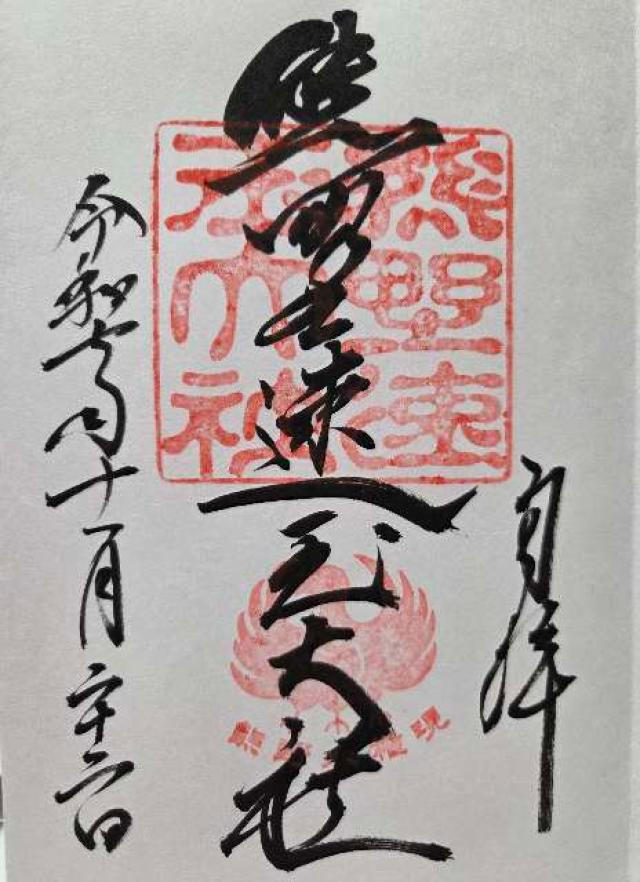 奉拝
熊野速玉大社
熊野速
玉大社
熊野権現
令和七年十月二十六日